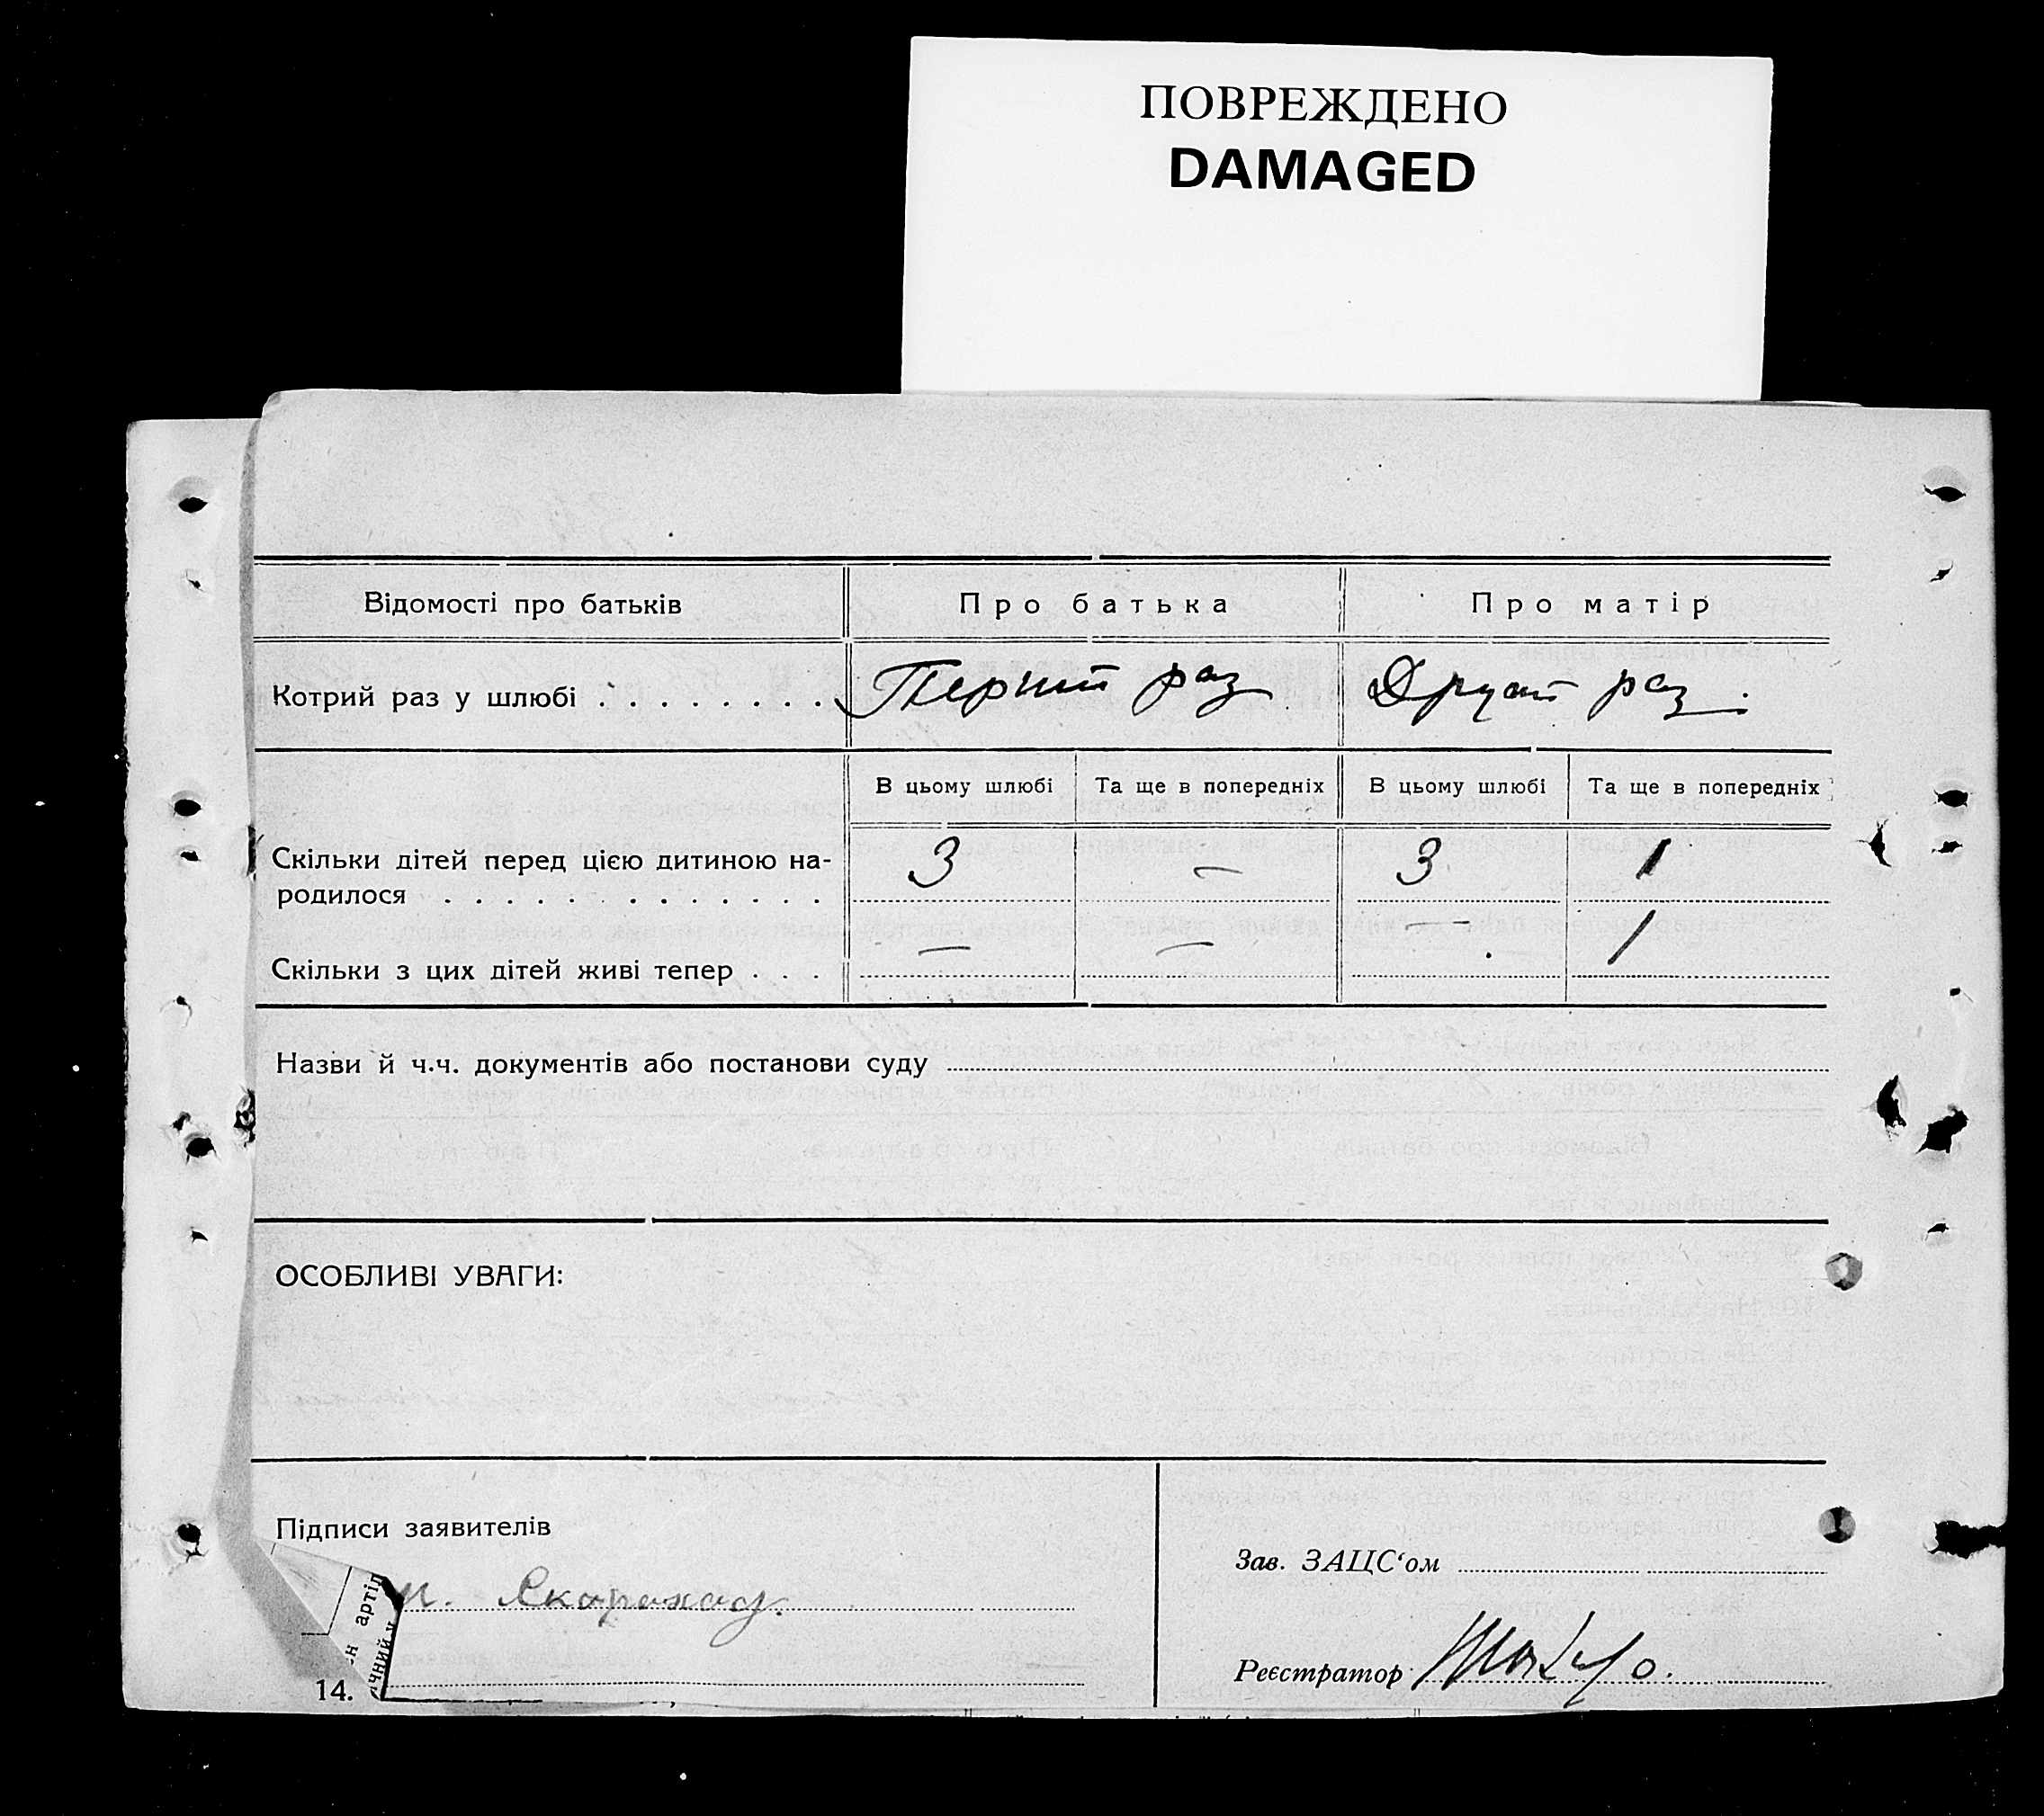 ПОВРЕЖДЕНО
DAMAGED
Відомості про батьків Про батька Про матір
Котрий раз у шлюбі . . . . . . . . Перший раз Другий раз.
В цьому шлюбі Та ще в попередніх В цьому шлюбі Та ще в попередніх
Скільки дітей перед цією дитиною на- 3 – 3 1
родилося . . . . . . . . . . . . .
Скільки з цих дітей живі тепер . . . – – – 1
Назви й ч.ч. документів або постанови суду
ОСОБЛИВІ УВАГИ:
Підписи заявителів
Зав. ЗАЦС‘ом
артіл
Реєстратор
14.